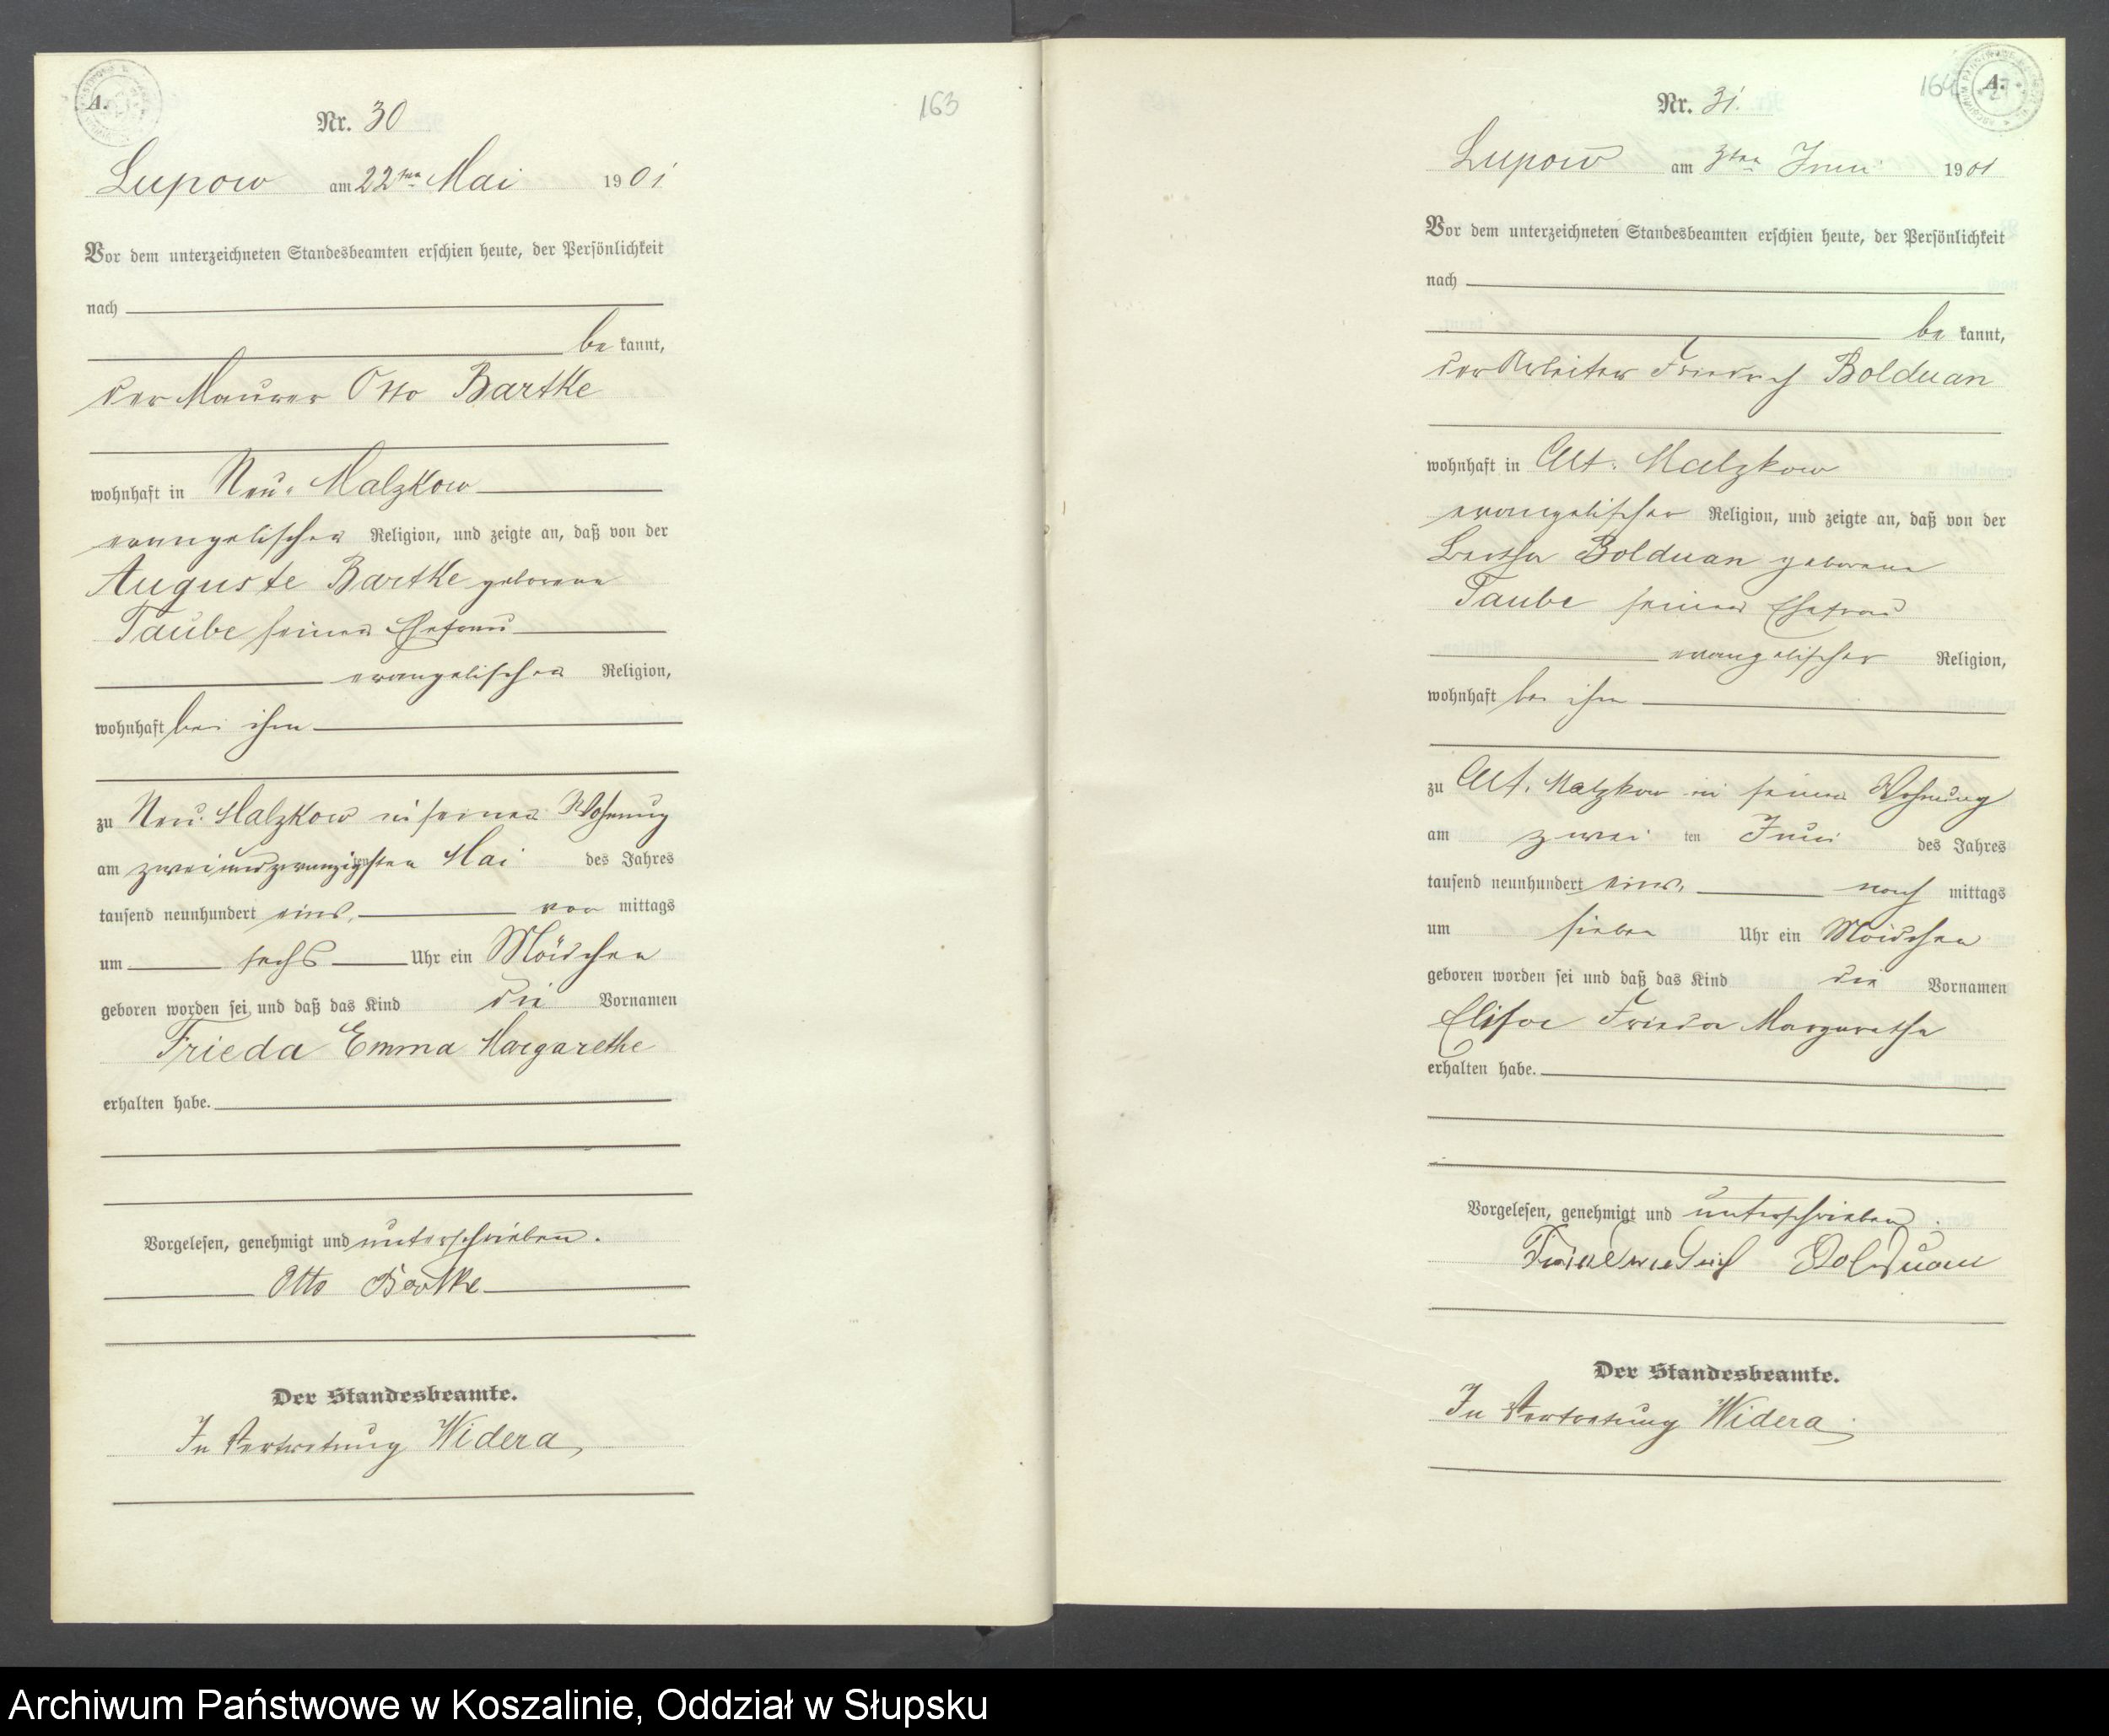 A.
Nr. 30
163
Lupow am 22ten Mai 1901
Vor dem unterzeichneten Standesbeamten erschien heute, der Persönlichkeit
nach
be kannt,
der Maurer Otto Bartke
wohnhaft in Neu-Malzkow
evangelischer Religion, und zeigte an, daß von der
Auguste Bartke geborene
Taube seiner Ehefrau
evangelischer Religion,
wohnhaft bei ihm
zu Neu-Malzkow in seiner Wohnung
am zweiundzwanzigsten ten Mai des Jahres
tausend neunhundert eins, vor mittags
um sechs Uhr ein Mädchen
geboren worden sei und daß das Kind die Vornamen
Frieda Emma Margarethe
erhalten habe.
Vorgelesen, genehmigt und unterschrieben.
Otto Bartke
Der Standesbeamte.
In Vertretung Widera
164
A.
Nr. 31.
Lupow am 3ten Juni 1901
Vor dem unterzeichneten Standesbeamten erschien heute, der Persönlichkeit
nach
be kannt,
der Arbeiter Friedrich Bolduan
wohnhaft in Alt-Malzkow
evangelischer Religion, und zeigte an, daß von der
Bertha Bolduan geborene
Taube seiner Ehefrau
evangelischer Religion,
wohnhaft bei ihm
zu Alt-Malzkow in seiner Wohnung
am zwei ten Juni des Jahres
tausend neunhundert eins, nach mittags
um sieben Uhr ein Mädchen
geboren worden sei und daß das Kind die Vornamen
Elise Frieda Margarethe
erhalten habe.
Vorgelesen, genehmigt und unterschrieben.
Bolduan
Der Standesbeamte.
In Vertretung Widera
Archiwum Państwowe w Koszalinie, Oddział w Słupsku